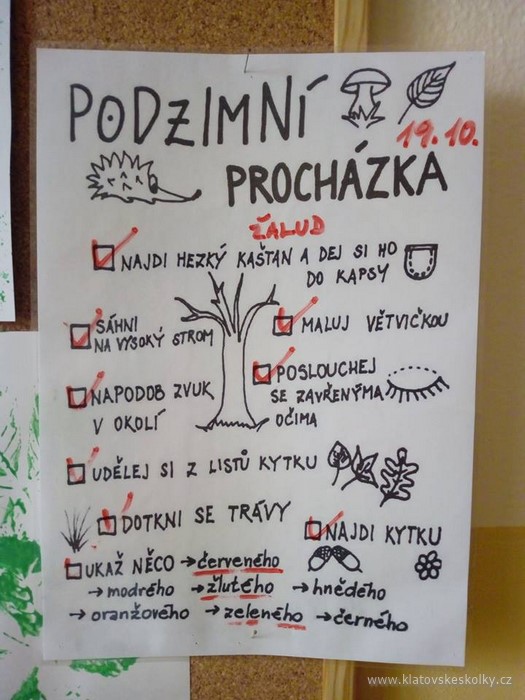 PODZIMNÍ
19.10.
PROCHÁZKA
ŽALUD
NAJDI HEZKÝ KAŠTAN A DEJ SI HO
DO KAPSY
SÁHNI
NA VYSOKÝ STROM
MALUJ VĚTVIČKOU
NAPODOB ZVUK
V OKOLÍ
POSLOUCHEJ
SE ZAVŘENÝMA
OČIMA
UDĚLEJ SI Z LISTŮ KYTKU
DOTKNI SE TRÁVY
NAJDI KYTKU
UKAŽ NĚCO → červeného
→ modrého → žlutého → hnědého
→ oranžového → zeleného → černého
www.klatovskeskolky.cz